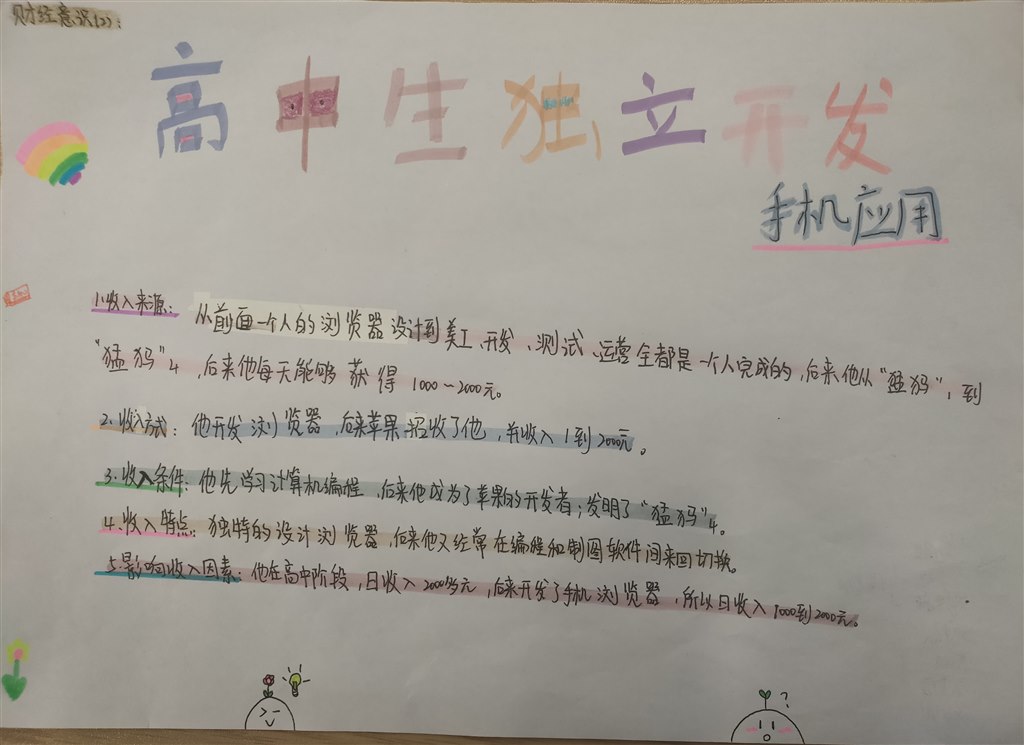 财经意识(2):
高中生独立开发
手机应用
1.收入来源:从前面一个人的浏览器设计到美工、开发、测试、运营全都是一个人完成的,后来他从“猛犸”1到
“猛犸”4,后来他每天能够获得1000~2000元。
2.收入方式:他开发浏览器,后来苹果招收了他,并收入1到2000元。
3.收入条件:他先学习计算机编程,后来他成为了苹果的开发者;发明了“猛犸”4。
4.收入特点:独特的设计浏览器,后来他又经常在编程和制图软件间来回切换。
5.影响收入因素:他在高中阶段,日收入2000多元,后来开发了手机浏览器,所以日收入1000到2000元。
?